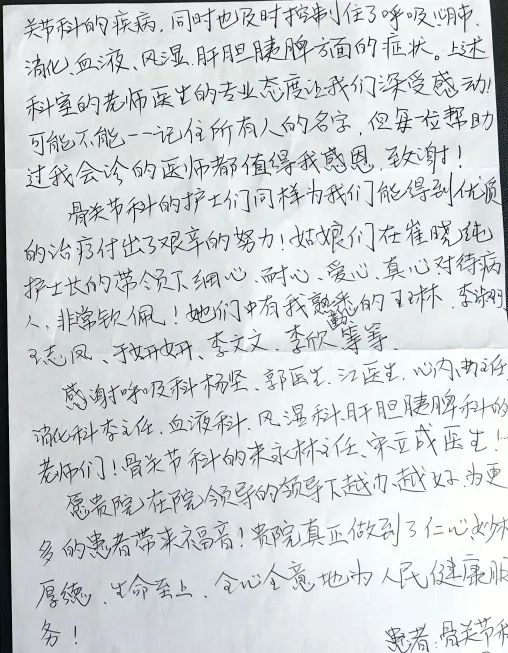 关节科的疾病,同时也及时控制住了呼吸、心肺、
消化、血液、风湿、肝胆胰脾方面的症状。上述
科室的老师医生的专业态度让我们深受感动!
可能不能一一记住所有人的名字,但每一位帮助
过我会诊的医师都值得我感恩,致谢!
骨关节科的护士们同样为我们能得到优质
的治疗付出了艰辛的努力!姑娘们在崔晓纯
护士长的带领下细心、耐心、爱心、真心对待病
人,非常钦佩!她们中有我熟悉的王林、李
王志凤、于妍妍、李文文、李欣 等等。
感谢呼吸科杨坚、郭医生、江医生、心内曲主任、
消化科李主任、血液科、风湿科、肝胆胰脾科的
老师们!骨关节科的来永林主任、宋立成医生!
愿贵院在院领导的领导下越办越好,为更
多的患者带来福音!贵院真正做到了仁心妙术
厚德、生命至上、全心全意地为人民健康服
务!
患者:骨关节科